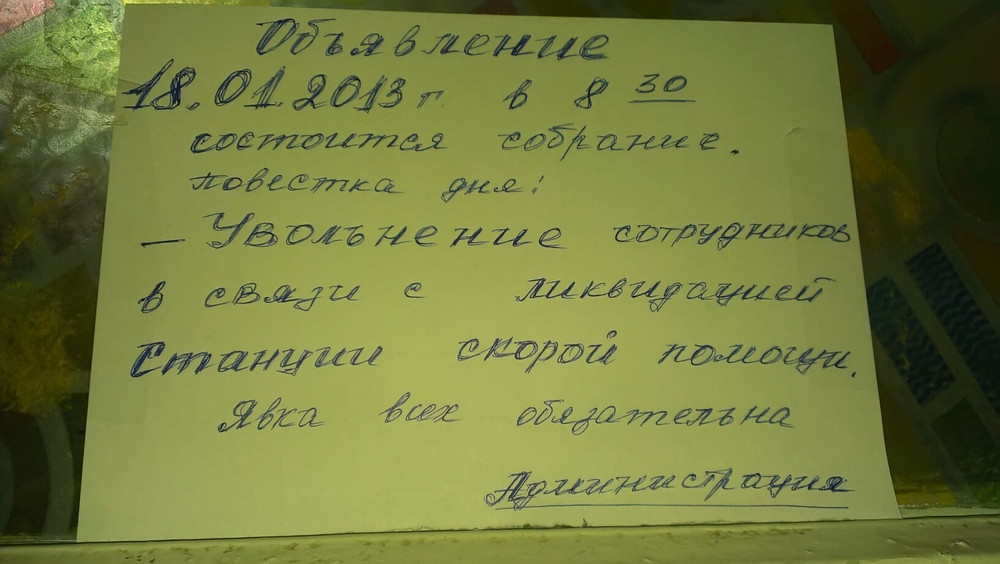 Объявление
18.01.2013 г. в 8 30
состоится собрание.
повестка дня:
— Увольнение сотрудников
в связи с ликвидацией
Станции скорой помощи.
Явка всех обязательна
Администрация